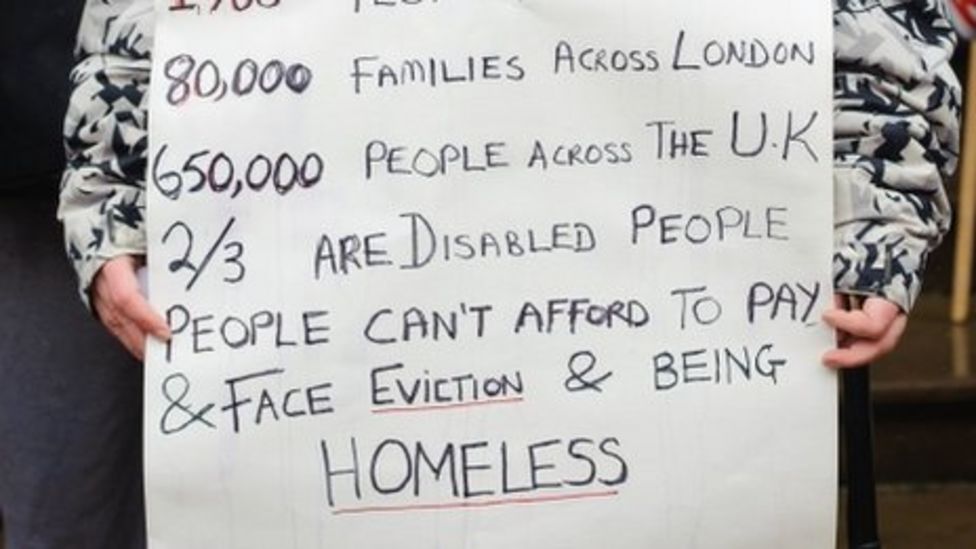 80,000 FAMILIES ACROSS LONDON
650,000 PEOPLE ACROSS THE U.K
2/3 ARE DISABLED PEOPLE
PEOPLE CAN'T AFFORD TO PAY
& FACE EVICTION & BEING
HOMELESS